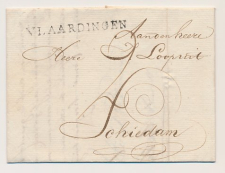 VLAARDINGEN
Aan den heere
Heere
Schiedam